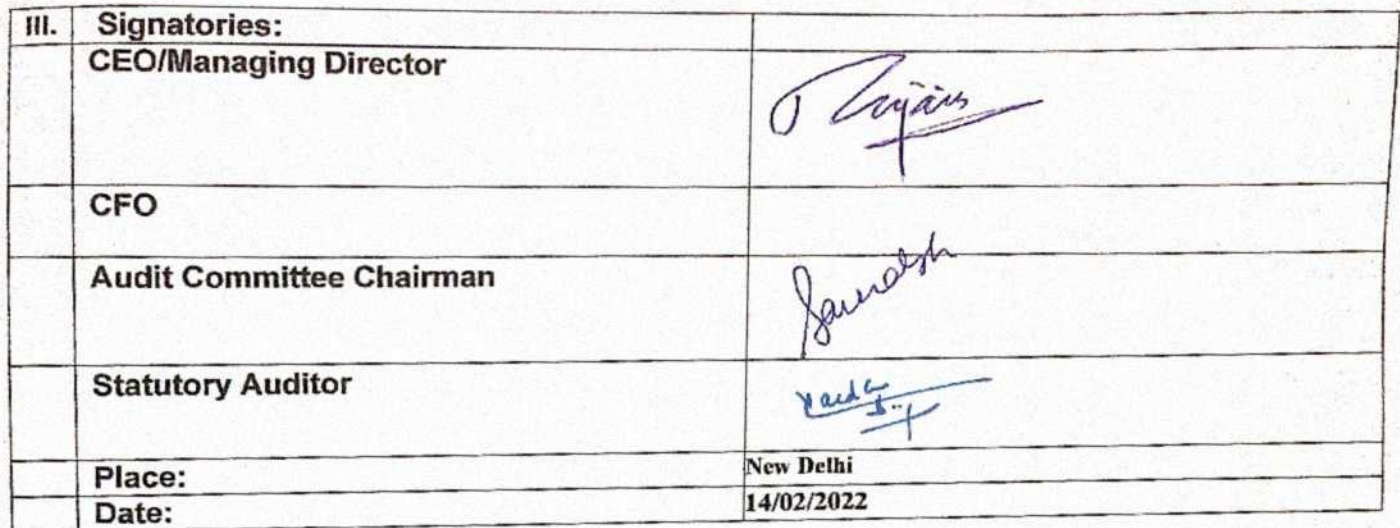 III. Signatories:
CEO/Managing Director
CFO
Audit Committee Chairman
Statutory Auditor
Place: New Delhi
Date: 14/02/2022